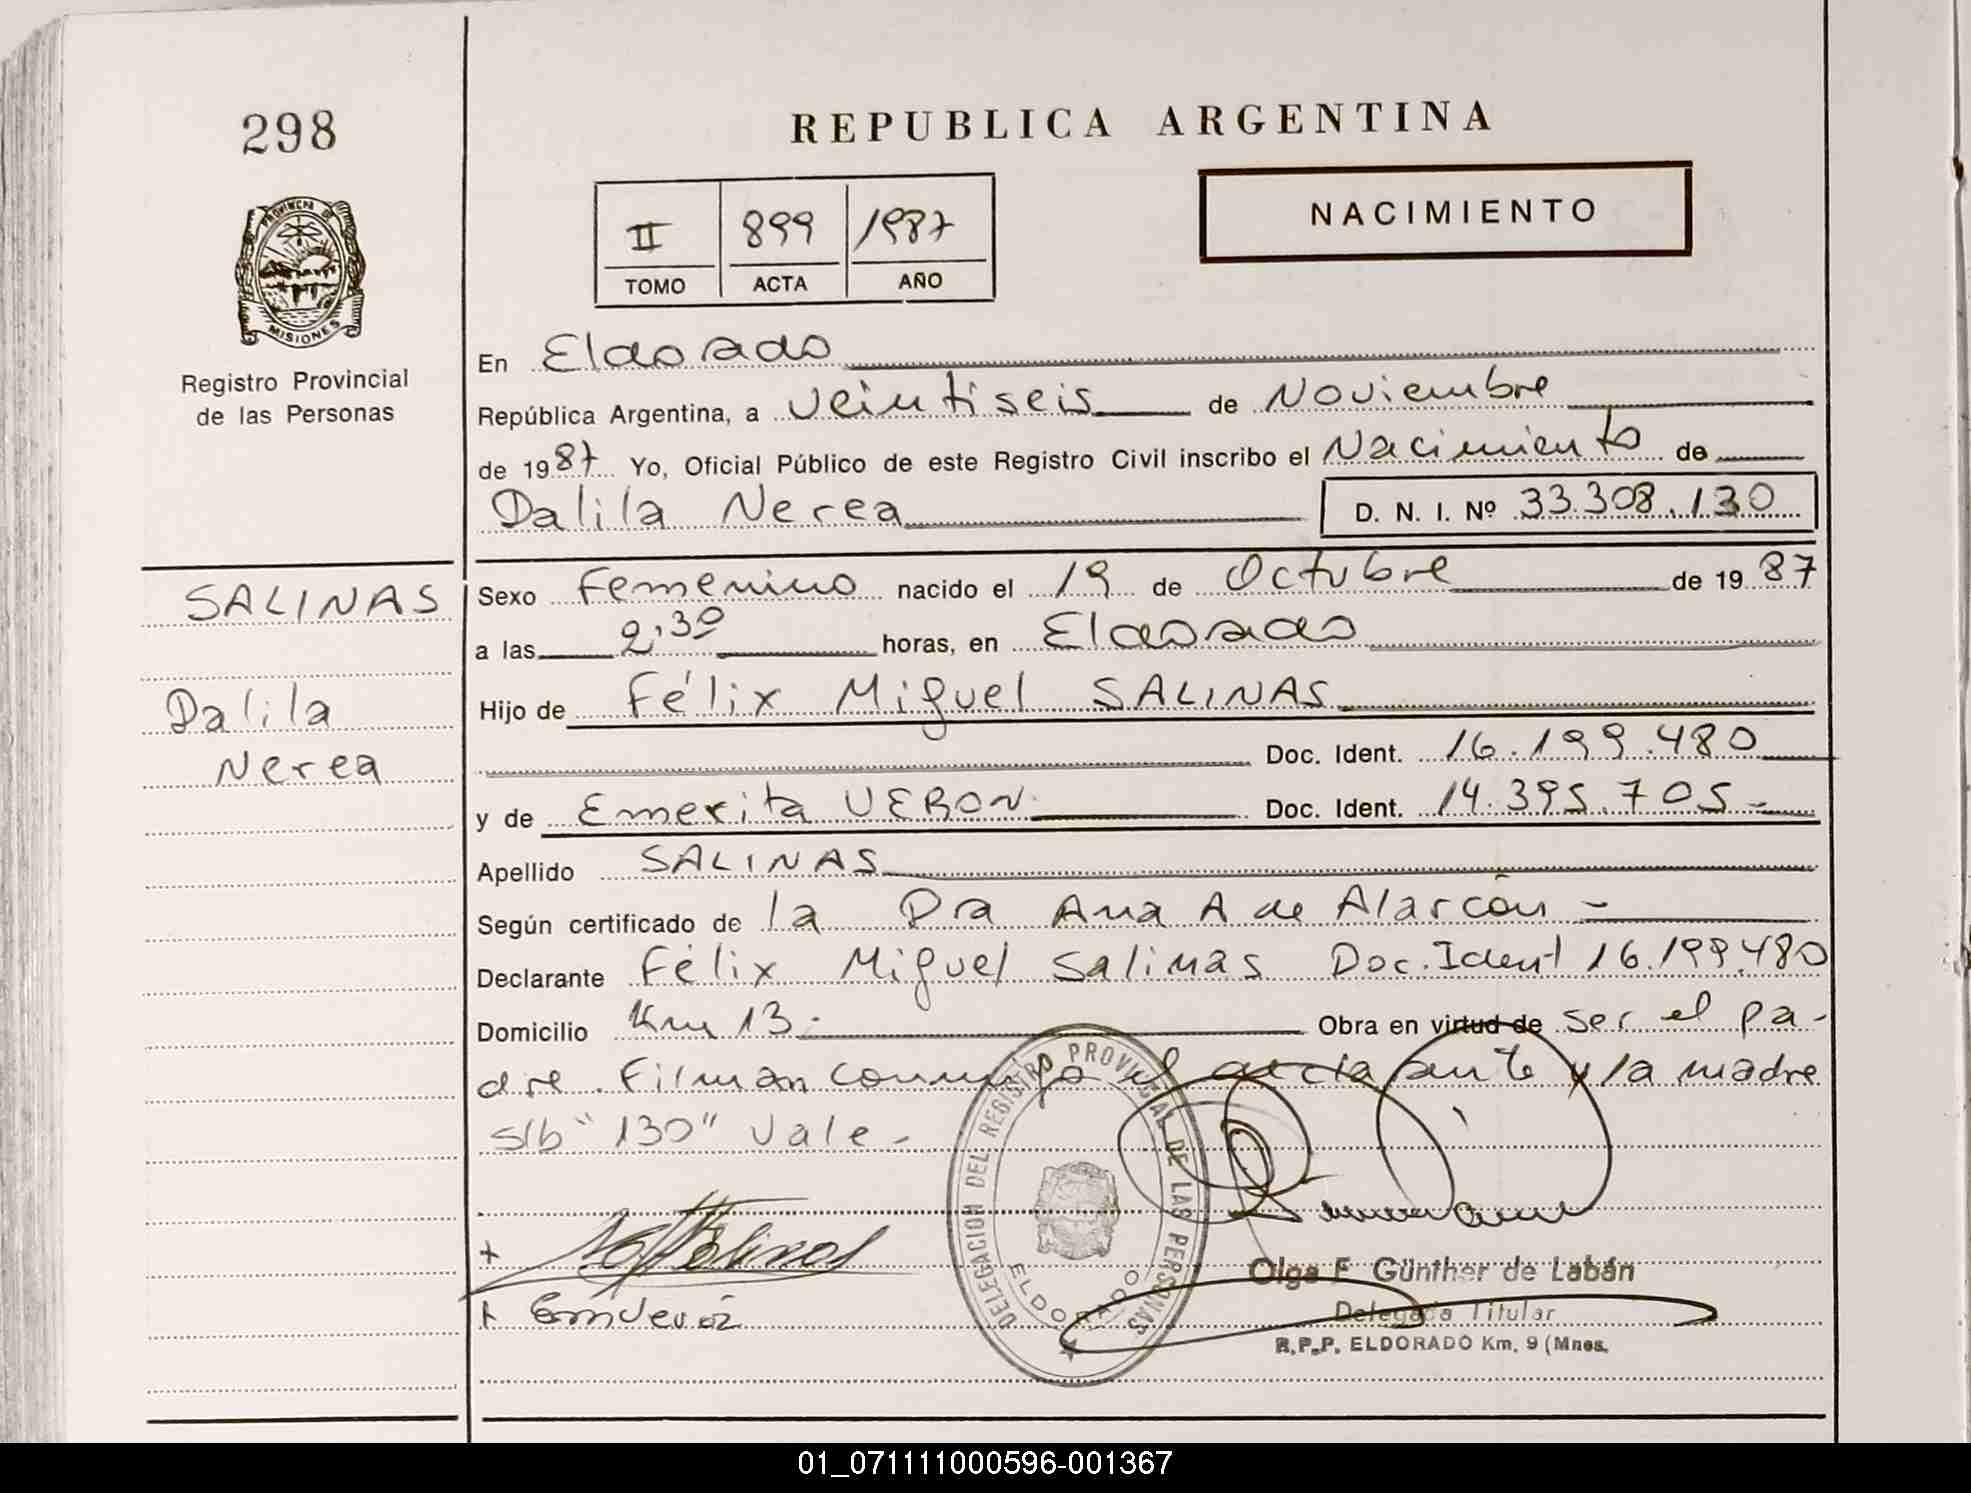 298
REPUBLICA ARGENTINA
II 899 1987
TOMO ACTA AÑO
NACIMIENTO
PROVINCIA DE
MISIONES
Registro Provincial
de las Personas
En Eldorado
República Argentina, a veintiseis de Noviembre
de 1987 Yo, Oficial Público de este Registro Civil inscribo el Nacimiento de
Dalila Nerea D. N. I. Nº 33.308.130
SALINAS
Dalila
Nerea
Sexo Femenino nacido el 19 de Octubre de 1987
a las 2,30 horas, en Eldorado
Hijo de Félix Miguel SALINAS
Doc. Ident. 16.199.480
y de Emerita VERON Doc. Ident. 14.395.705-
Apellido SALINAS
Según certificado de la Dra Ana A de Alarcón -
Declarante Félix Miguel Salinas Doc. Ident 16.199.480
Domicilio Km 13.- Obra en virtud de ser el pa-
dre. Firman conmigo el declarante y la madre
s/b "130" Vale-
DELEGACION DEL REGISTRO PROVINCIAL DE LAS PERSONAS
ELDORADO
+ Salinas
+
Olga F. Günther de Labán
Delegada Titular
R.P.P. ELDORADO Km. 9 (Mnes.
01_071111000596-001367